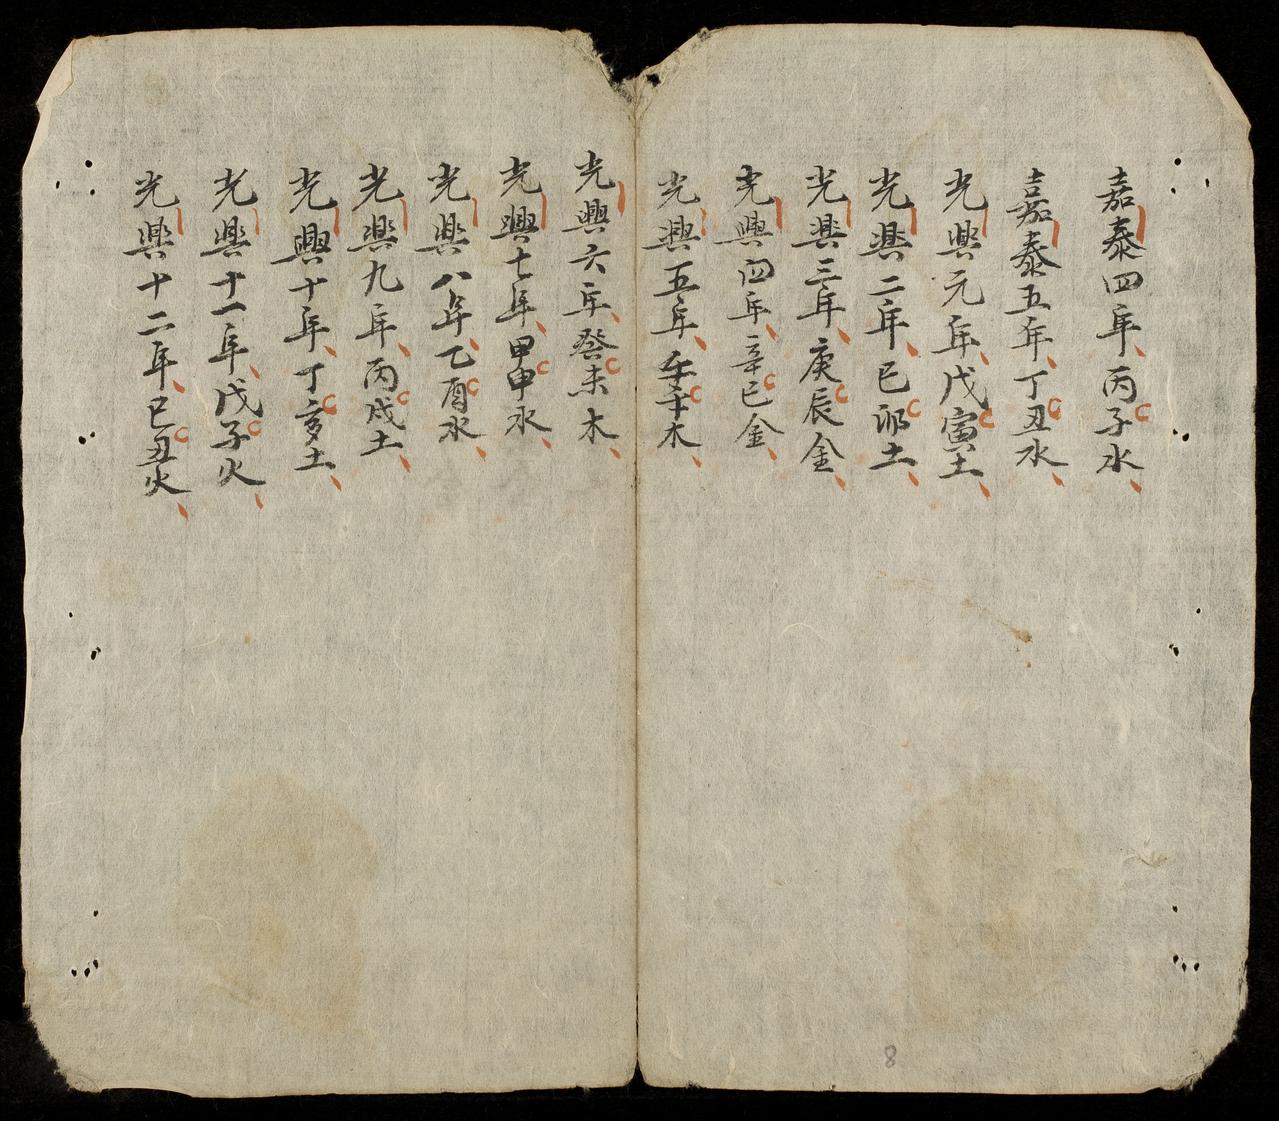 嘉泰四年丙子水
嘉泰五年丁丑水
光興元年戊寅土
光興二年己卯土
光興三年庚辰金
光興四年辛巳金
光興五年壬午木
光興六年癸未木
光興七年甲申水
光興八年乙酉水
光興九年丙戌土
光興十年丁亥土
光興十一年戊子火
光興十二年己丑火
8